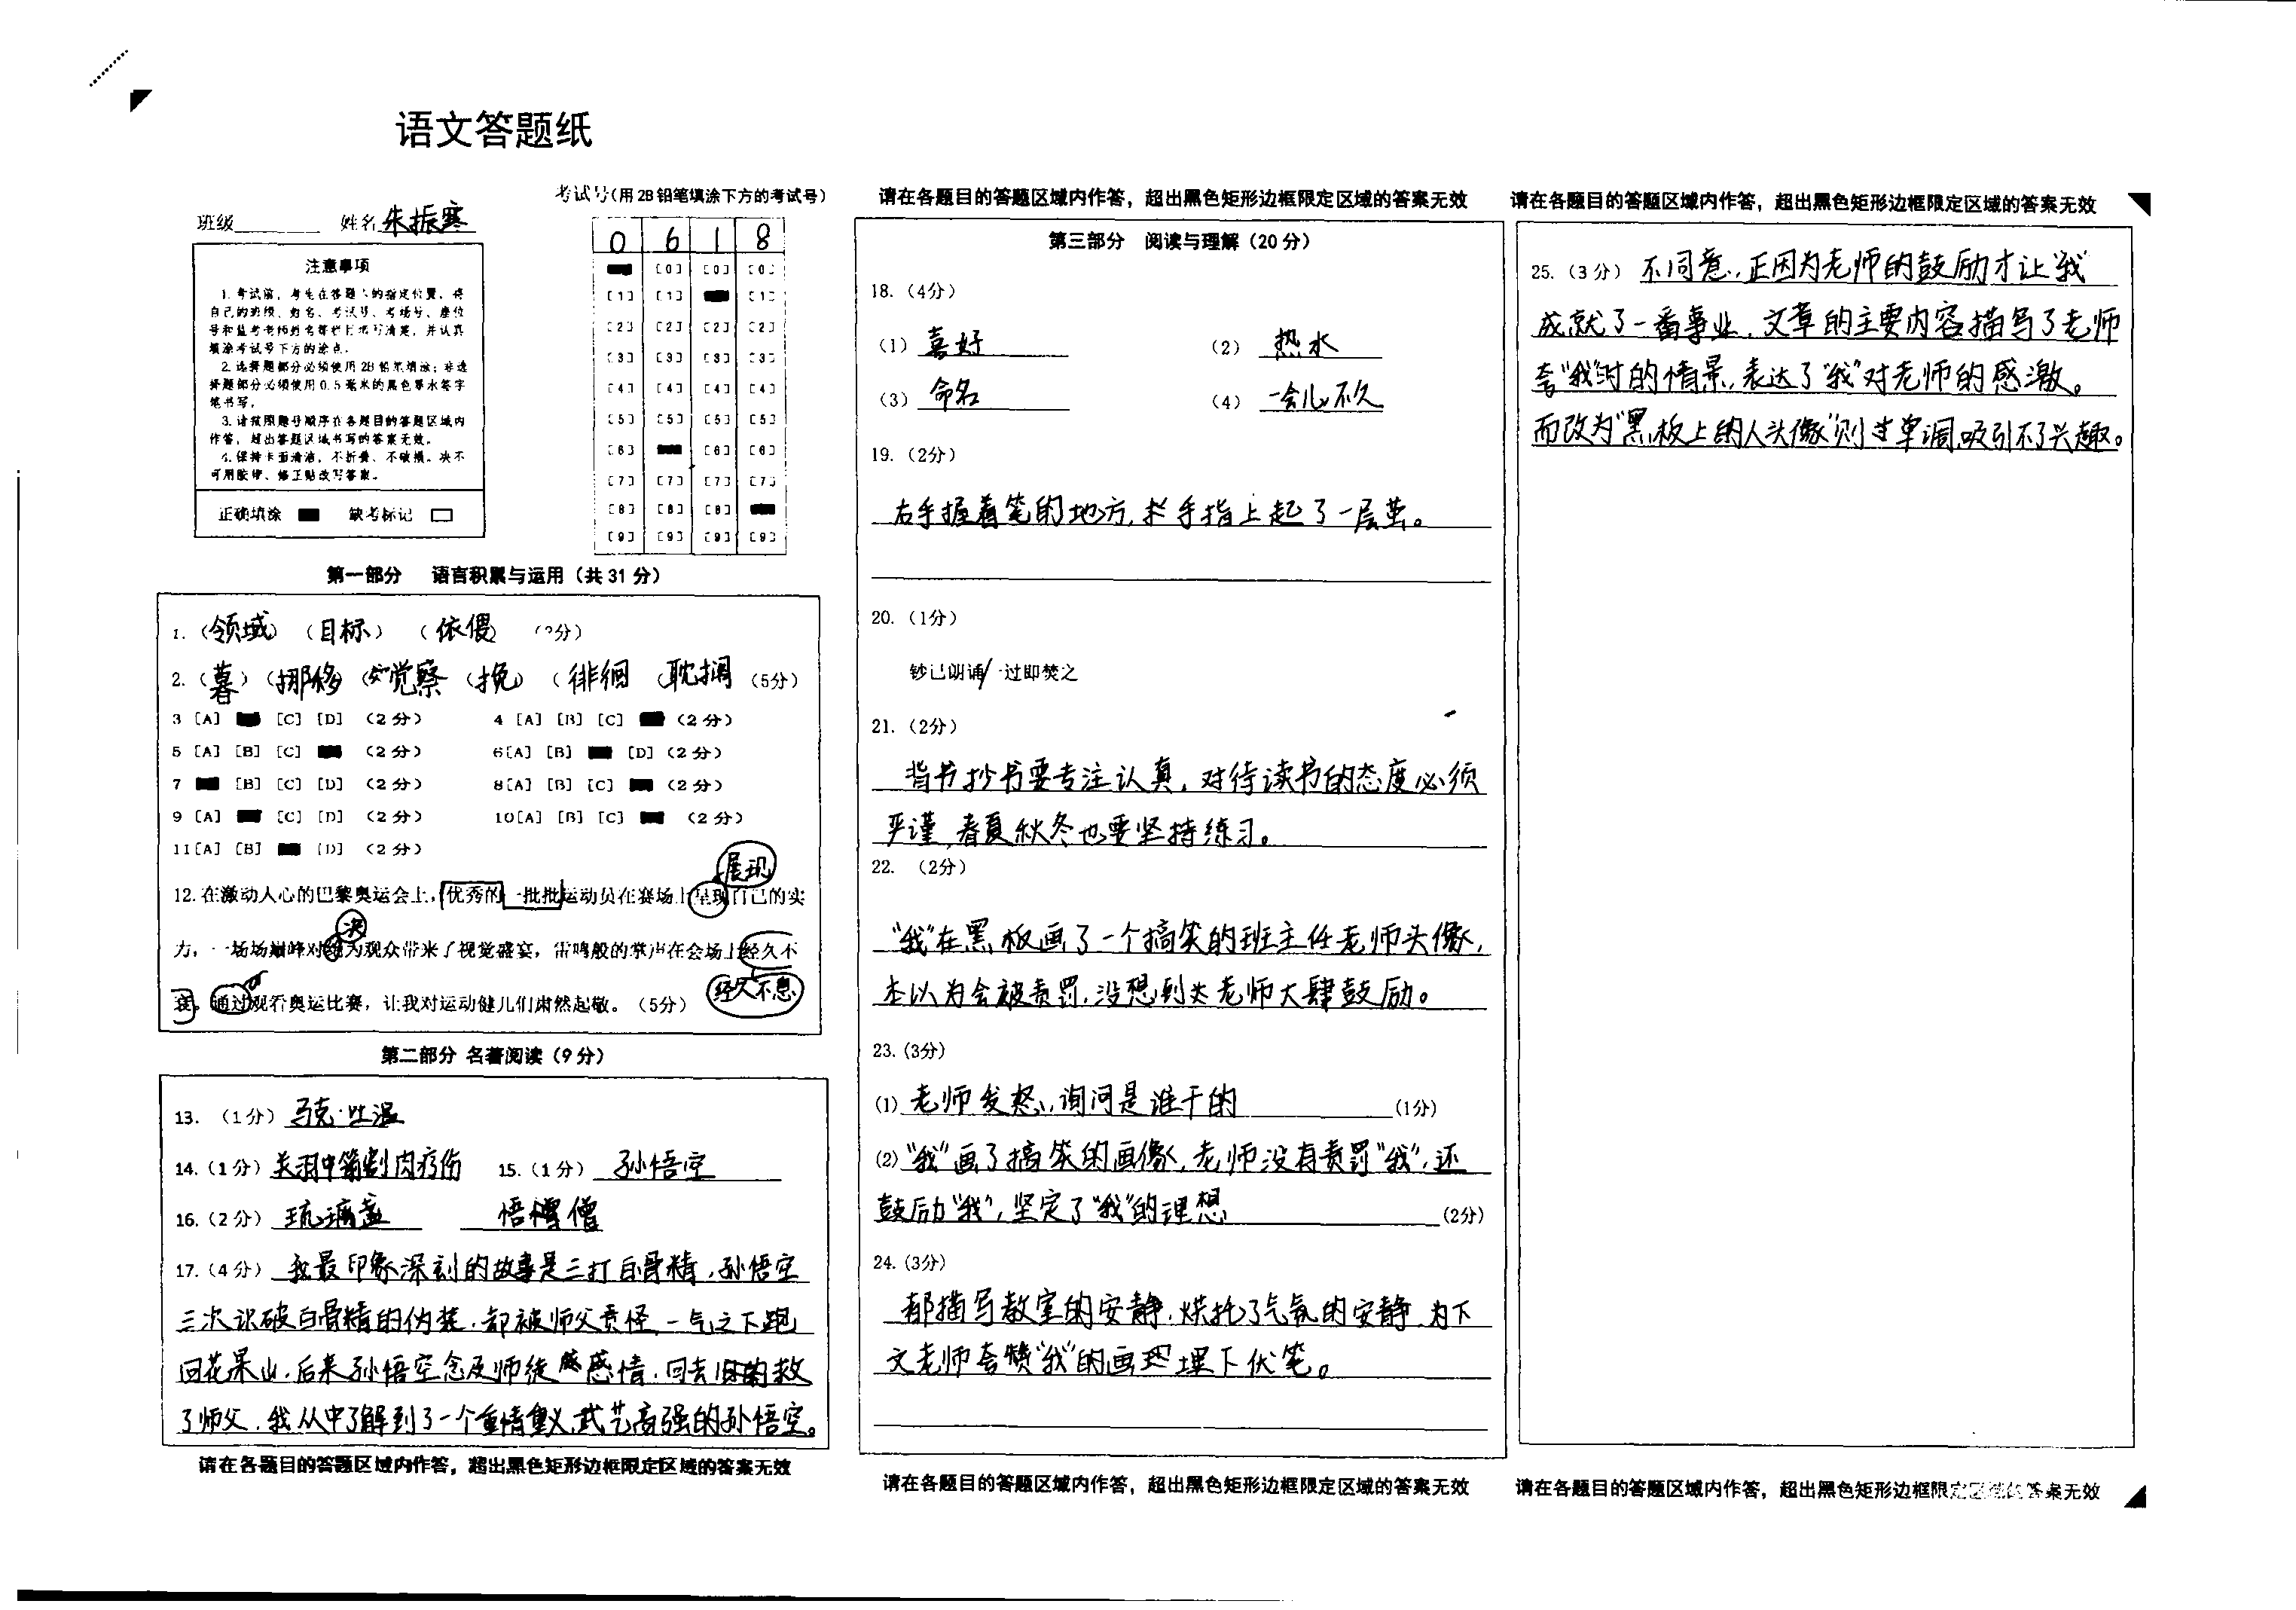 语文答题纸
班级 姓名 朱振寒
考试号(用2B铅笔填涂下方的考试号)
0 6 1 8
注意事项
1.考试前,考生在答题卡的指定位置,将
自己的班级、姓名、考试号、考场号、座位
号和监考老师姓名等栏目填写清楚,并认真
填涂考试号下方的涂点。
2.选择题部分必须使用2B铅笔填涂;非选
择题部分必须使用0.5毫米的黑色墨水签字
笔书写。
3.请按照题号顺序在各题目的答题区域内
作答,超出答题区域书写的答案无效。
4.保持卡面清洁,不折叠、不破损。决不
可用胶带、修正贴改写答案。
正确填涂 缺考标记
[0] [0] [0]
[1] [1] [1]
[2] [2] [2] [2]
[3] [3] [3] [3]
[4] [4] [4] [4]
[5] [5] [5] [5]
[6] [6] [6]
[7] [7] [7] [7]
[8] [8] [8]
[9] [9] [9] [9]
第一部分 语言积累与运用(共31分)
1.(领域)(目标)(依偎)
2.(暮)(挪移)(觉察)(挽)(徘徊)(耽搁)(5分)
3 [A] [C] [D] (2分) 4 [A] [B] [C] (2分)
5 [A] [B] [C] (2分) 6[A] [B] [D] (2分)
7 [B] [C] [D] (2分) 8[A] [B] [C] (2分)
9 [A] [C] [D] (2分) 10[A] [B] [C] (2分)
11[A] [B] [D] (2分)
展现
12.在激动人心的巴黎奥运会上,优秀的一批批运动员在赛场上呈现自己的实
决
力,一场场巅峰对绝为观众带来了视觉盛宴,雷鸣般的掌声在会场上经久不
衰。通过观看奥运比赛,让我对运动健儿们肃然起敬。(5分)
经久不息
第二部分 名著阅读(9分)
13.(1分)马克·吐温
14.(1分)关羽中箭割肉疗伤 15.(1分)孙悟空
16.(2分)琉璃盏 悟僧
17.(4分)我最印象深刻的故事是三打白骨精,孙悟空
三次识破白骨精的伪装,却被师父责怪,一气之下跑
回花果山,后来孙悟空念及师徒感情,回去救
了师父,我从中了解到了一个重情重义,武艺高强的孙悟空。
请在各题目的答题区域内作答,超出黑色矩形边框限定区域的答案无效
请在各题目的答题区域内作答,超出黑色矩形边框限定区域的答案无效
第三部分 阅读与理解(20分)
18.(4分)
(1)喜好 (2)热水
(3)命名 (4)一会儿,不久
19.(2分)
右手握着笔的地方,手指上起了一层茧。
20.(1分)
钞已朗诵/一过即焚之
21.(2分)
背书抄书要专注认真,对待读书的态度必须
严谨,春夏秋冬也要坚持练习。
22.(2分)
“我”在黑板画了一个搞笑的班主任老师头像,
本以为会被责罚,没想到老师大肆鼓励。
23.(3分)
(1)老师发怒,询问是谁干的 (1分)
(2)“我”画了搞笑的画像,老师没有责罚“我”,还
鼓励“我”,坚定了“我”的理想 (2分)
24.(3分)
都描写教室的安静,烘托了气氛的安静,为下
文老师夸赞“我”的画埋下伏笔。
请在各题目的答题区域内作答,超出黑色矩形边框限定区域的答案无效
请在各题目的答题区域内作答,超出黑色矩形边框限定区域的答案无效
25.(3分)不同意,正因为老师的鼓励才让“我”
成就了一番事业,文章的主要内容描写了老师
夸“我”时的情景,表达了“我”对老师的感激。
而改为“黑板上的人头像”则过单调,吸引不了兴趣。
请在各题目的答题区域内作答,超出黑色矩形边框限定区域的答案无效